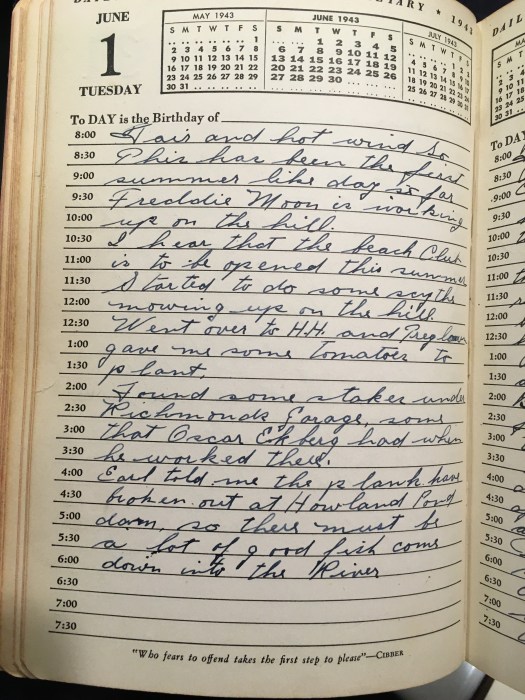 DIARY ★ 1943
JUNE
1
TUESDAY
MAY 1943
S M T W T F S
.. .. .. .. .. .. 1
2 3 4 5 6 7 8
9 10 11 12 13 14 15
16 17 18 19 20 21 22
23 24 25 26 27 28 29
30 31 .. .. .. .. ..
JUNE 1943
S M T W T F S
.. .. 1 2 3 4 5
6 7 8 9 10 11 12
13 14 15 16 17 18 19
20 21 22 23 24 25 26
27 28 29 30 .. .. ..
JULY 1943
S M T W T F S
.. .. .. .. 1 2 3
4 5 6 7 8 9 10
11 12 13 14 15 16 17
18 19 20 21 22 23 24
25 26 27 28 29 30 31
To DAY is the Birthday of
8:00 Fair and hot wind So.
8:30 This has been the first
9:00 summer like day so far
9:30 Freddie Moon is working
10:00 up on the hill.
10:30 I hear that the beach Club
11:00 is to be opened this summer
11:30 Started to do some scythe
12:00 mowing up on the hill
12:30 Went over to H.H. and
1:00 gave me some tomatoes to
1:30 plant.
2:00 Found some stakes under
2:30 Richmonds Garage, some
3:00 that Oscar Ekberg had when
3:30 he worked there.
4:00 Earl told me the plank have
4:30 broken out at Howland Pond
5:00 dam, so there must be
5:30 a lot of good fish come
6:00 down into the River
6:30
7:00
7:30
"Who fears to offend takes the first step to please"—CIBBER
DAIL
To DA
8:00
8:30
9:00
9:30
10:00
10:30
11:00
11:30
12:00
12:30
1:00
1:30
2:00
2:30
3:00
3:30
4:00
4:30
5:00
5:30
6:00
6:30
7:00
7:30